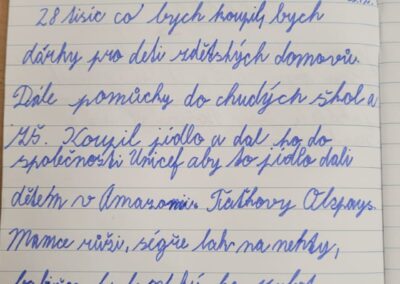 28 tisíc co bych koupil, bych
dárky pro deti zdětských domovů.
Dále pomůcky do chudých škol a
MŠ. Koupil jídlo a dal ho do
společnosti Unicef aby to jídlo dali
dětem v Amazonii. Taťkovy Olspays.
Mamce růži, ségře lak na nehty,